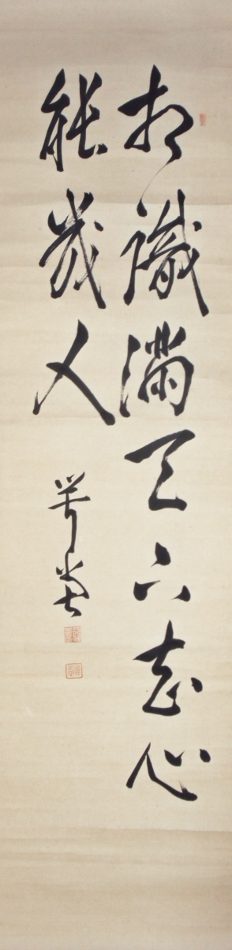 相識滿天下知心
能幾人
咢堂